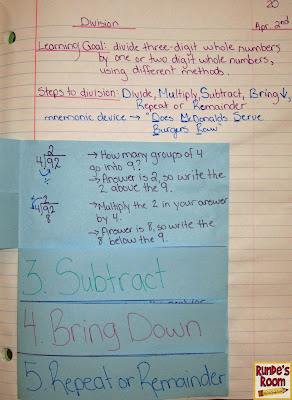 20
Division
Apr. 2nd
Learning Goal: divide three-digit whole numbers
by one or two digit whole numbers,
using different methods.
Steps to division: Divide, Multiply, Subtract, Bring↓,
Repeat or Remainder
mnemonic device → "Does McDonalds Serve
Burgers Raw"
2
4)92
→ How many groups of 4
go into 9?
→ Answer is 2, so write the
2 above the 9.
2
4)92
8
→ Multiply the 2 in your answer
by 4.
→ Answer is 8, so write the
8 below the 9.
3. Subtract
4. Bring Down
5. Repeat or Remainder
RUNDE'S
ROOM